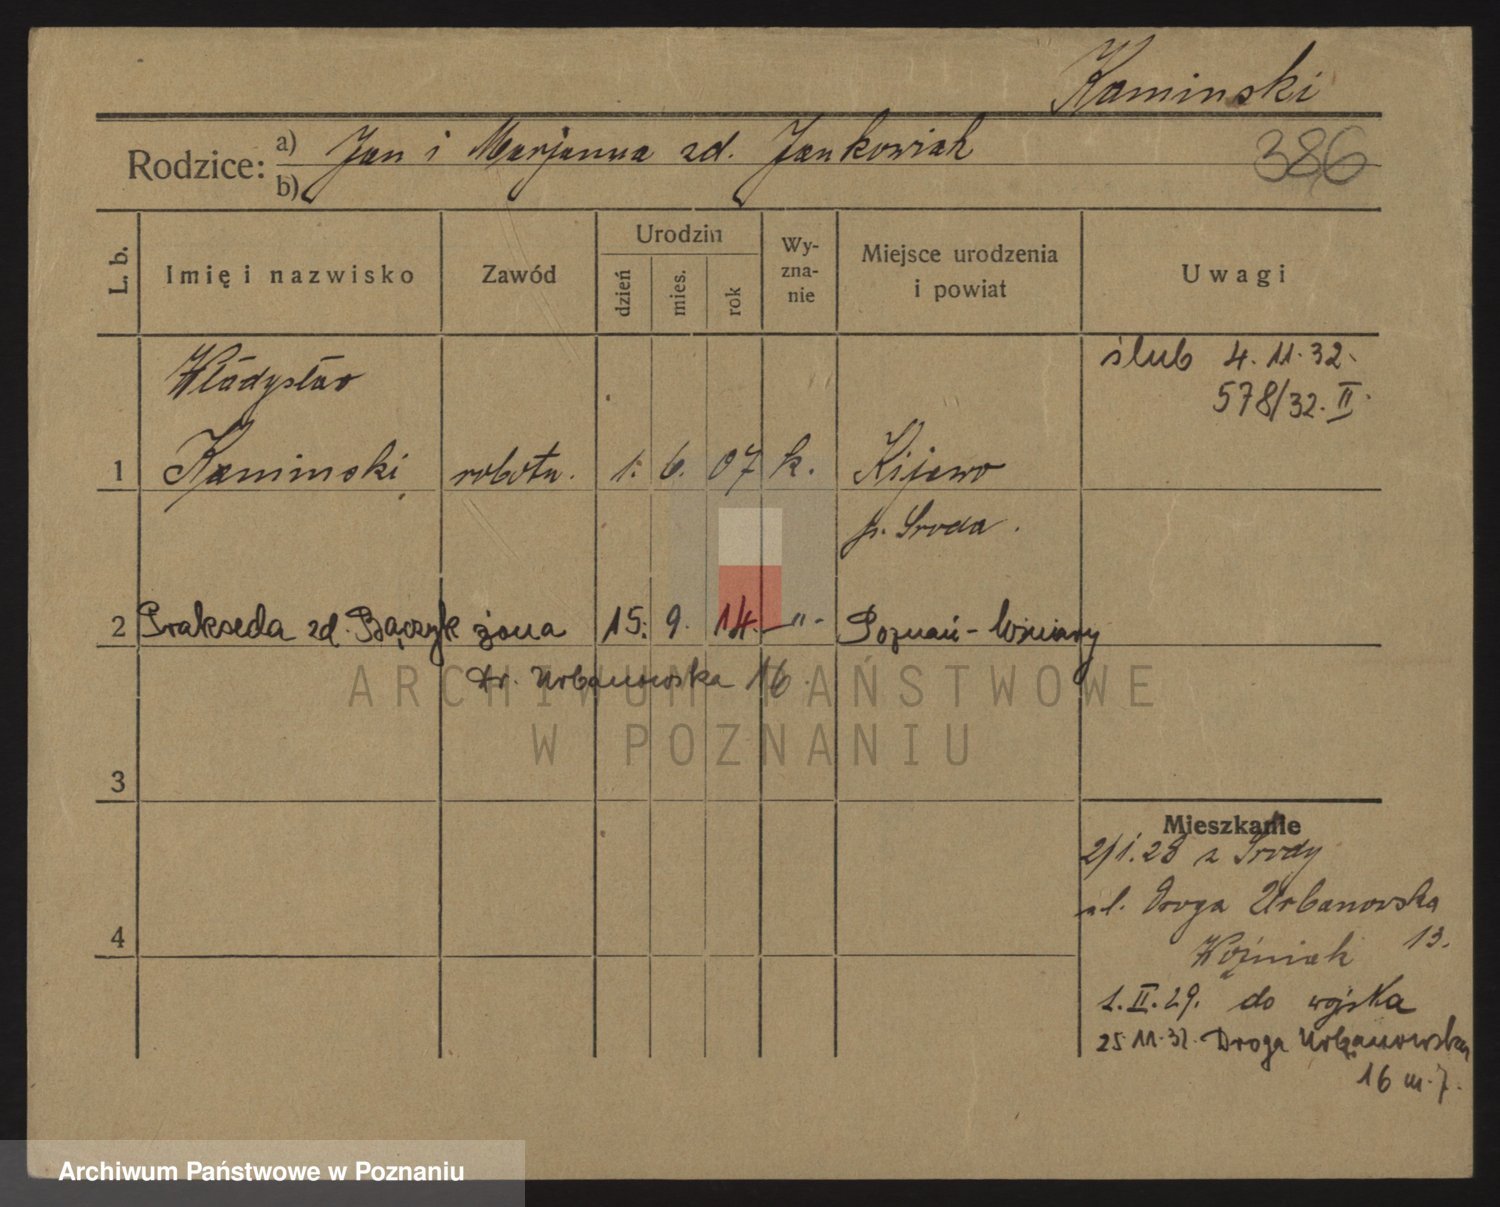 Kaminski
Rodzice: a) Jan i Marjanna zd. Jankowiak
b)
386
L. b.
Imię i nazwisko
Zawód
Urodzin
dzień
mies.
rok
Wy-
zna-
nie
Miejsce urodzenia
i powiat
Uwagi
ślub 4.11.32.
578/32. II.
Władysław
1 Kaminski robotn. 1. 6. 07 k. Kijewo
p. Sroda.
2 Prakseda zd. Bączyk żona 15. 9. 14. -"- Poznań - Winiary
Dr. Urbanowska 16.
3
4
Mieszkanie
2/1.28 z Srody
ul. Droga Urbanowska
13.
Woźniak
1.II.29. do wojska
25.11.32. Droga Urbanowska
16 m. 7.
ARCHIWUM PAŃSTWOWE
W POZNANIU
Archiwum Państwowe w Poznaniu